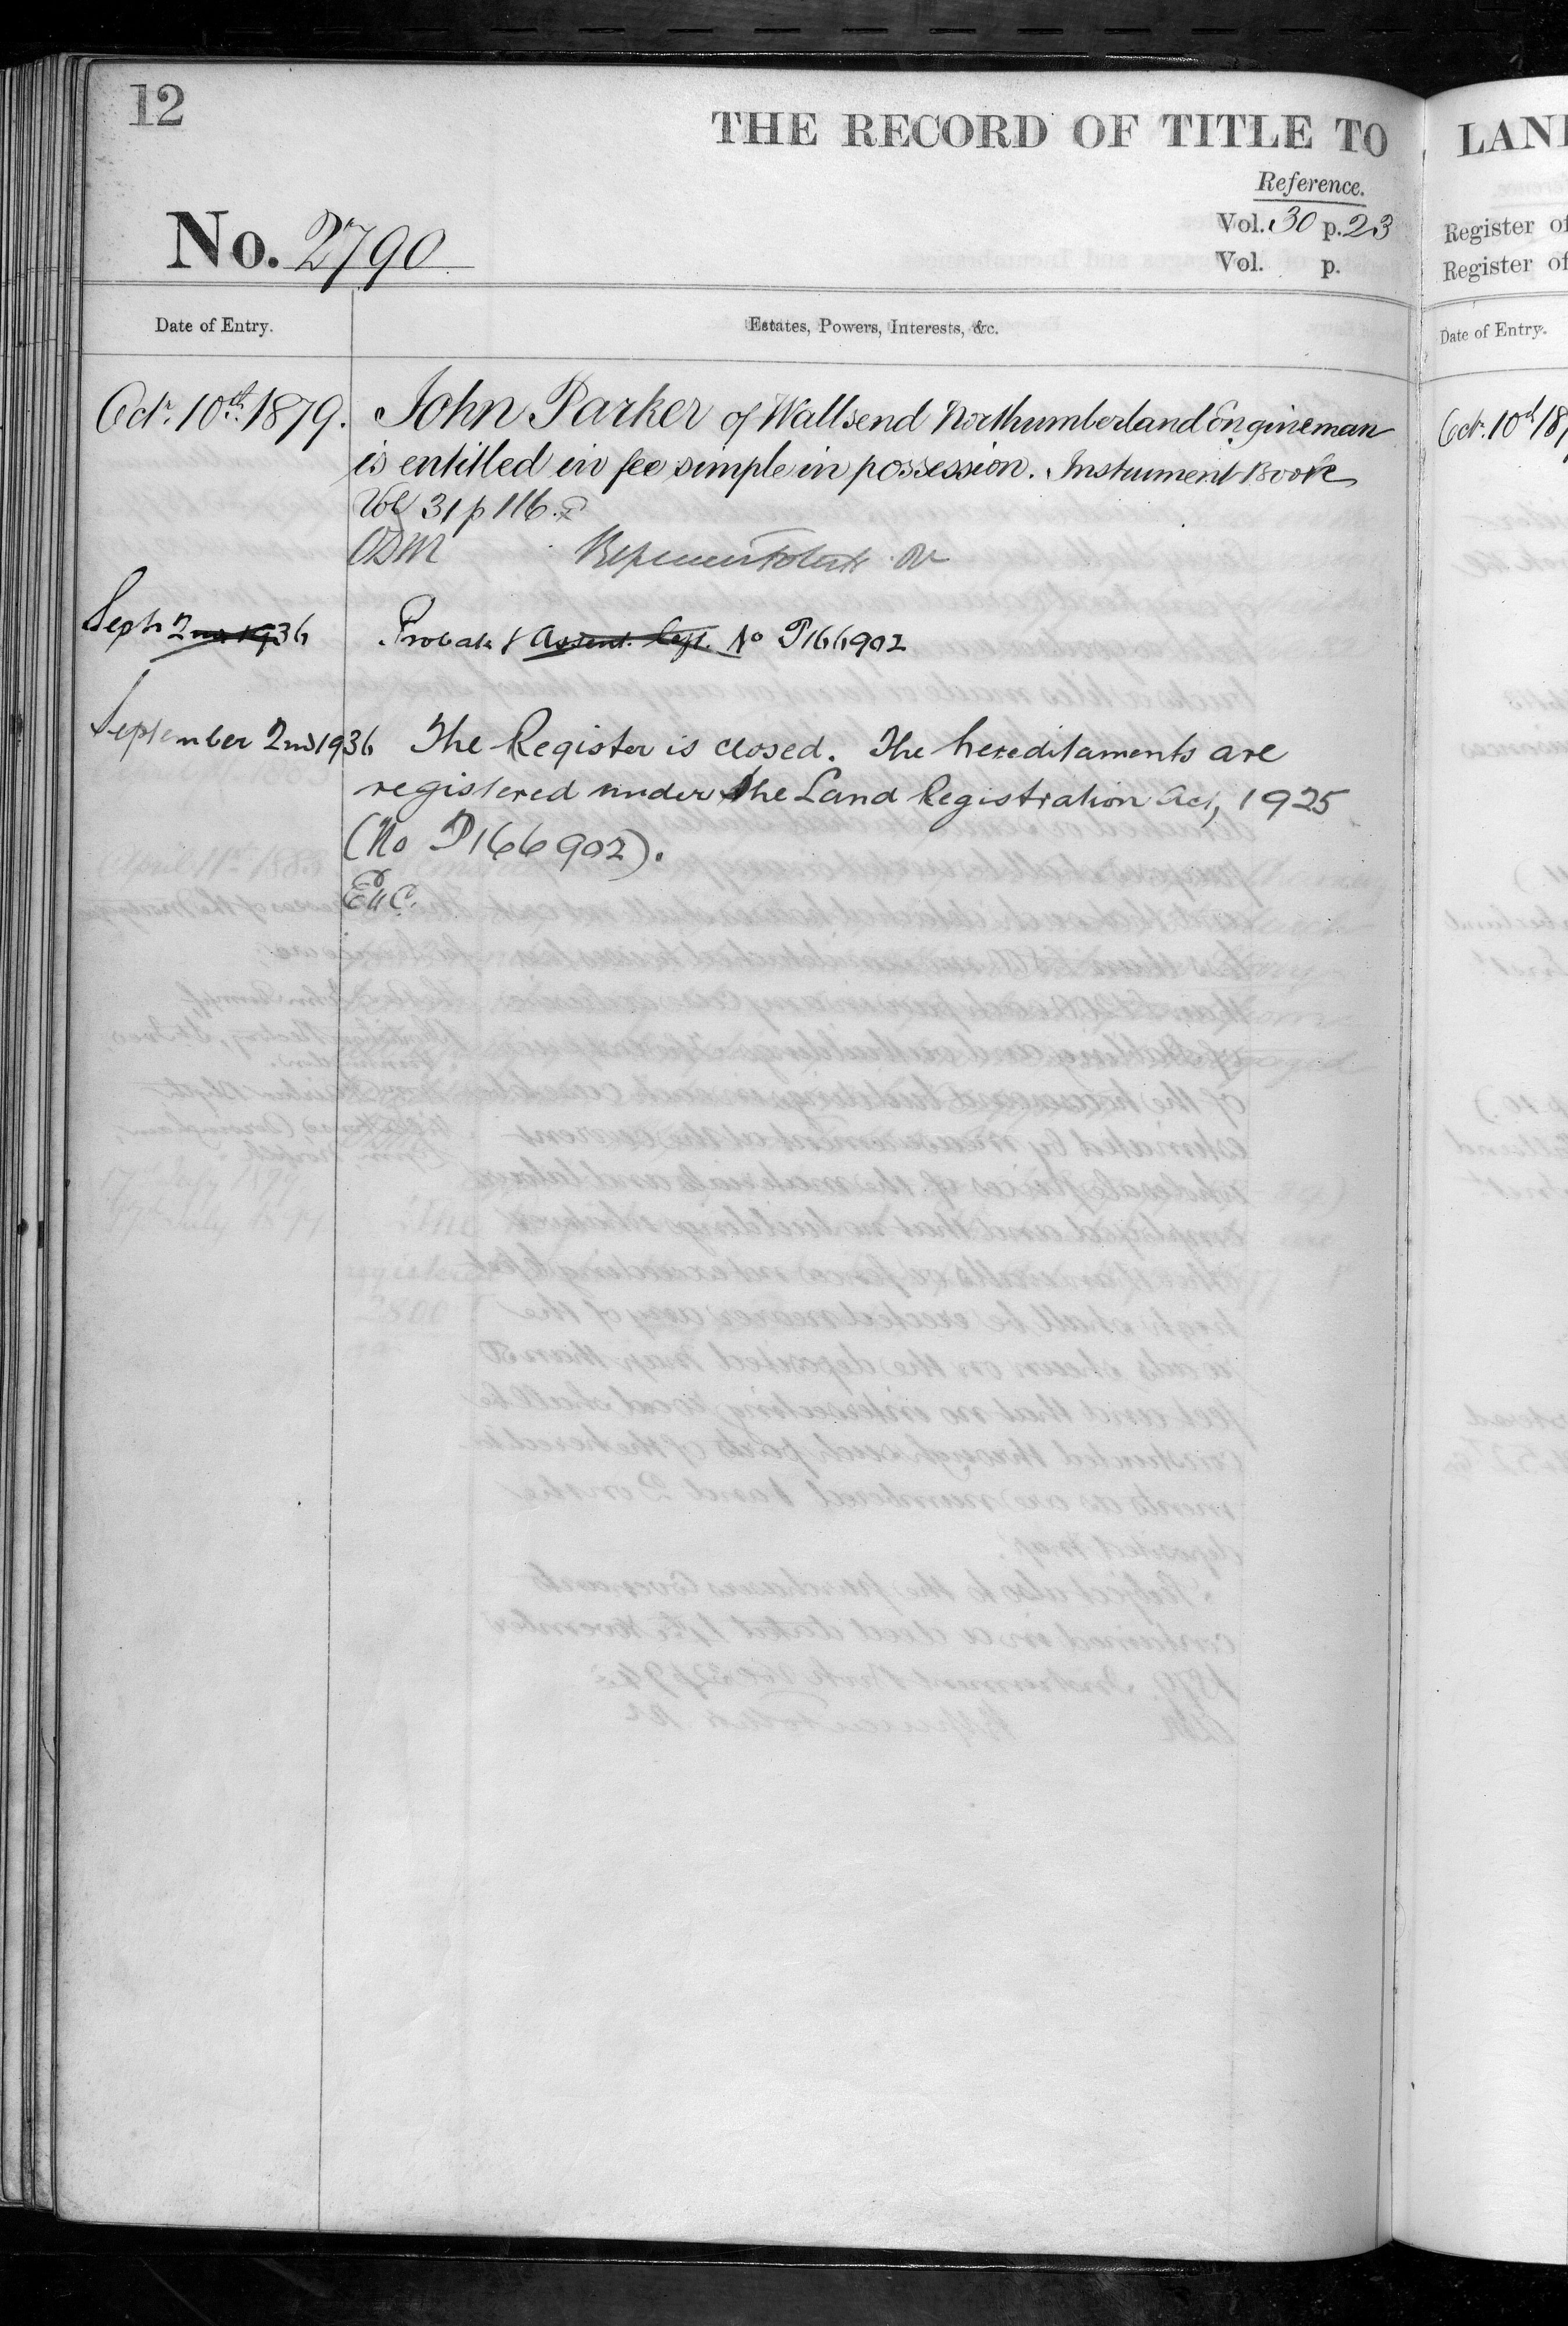 12
THE RECORD OF TITLE TO
Reference.
No. 2790
Vol. 30 p. 23
Vol. p.
Date of Entry.
Estates, Powers, Interests, &c.
Octr. 10th 1879.
John Parker of Wallsend Northumberland Engineman
is entitled in fee simple in possession. Instrument Book
Vol 31 p 116.
Sept 2nd 1936
Probate & Assent. Regt. No P166902
September 2nd 1936
The Register is closed. The hereditaments are
registered under the Land Registration Act, 1925
(No P166902).
LAN
Register of
Register of
Date of Entry.
Octr. 10th 18